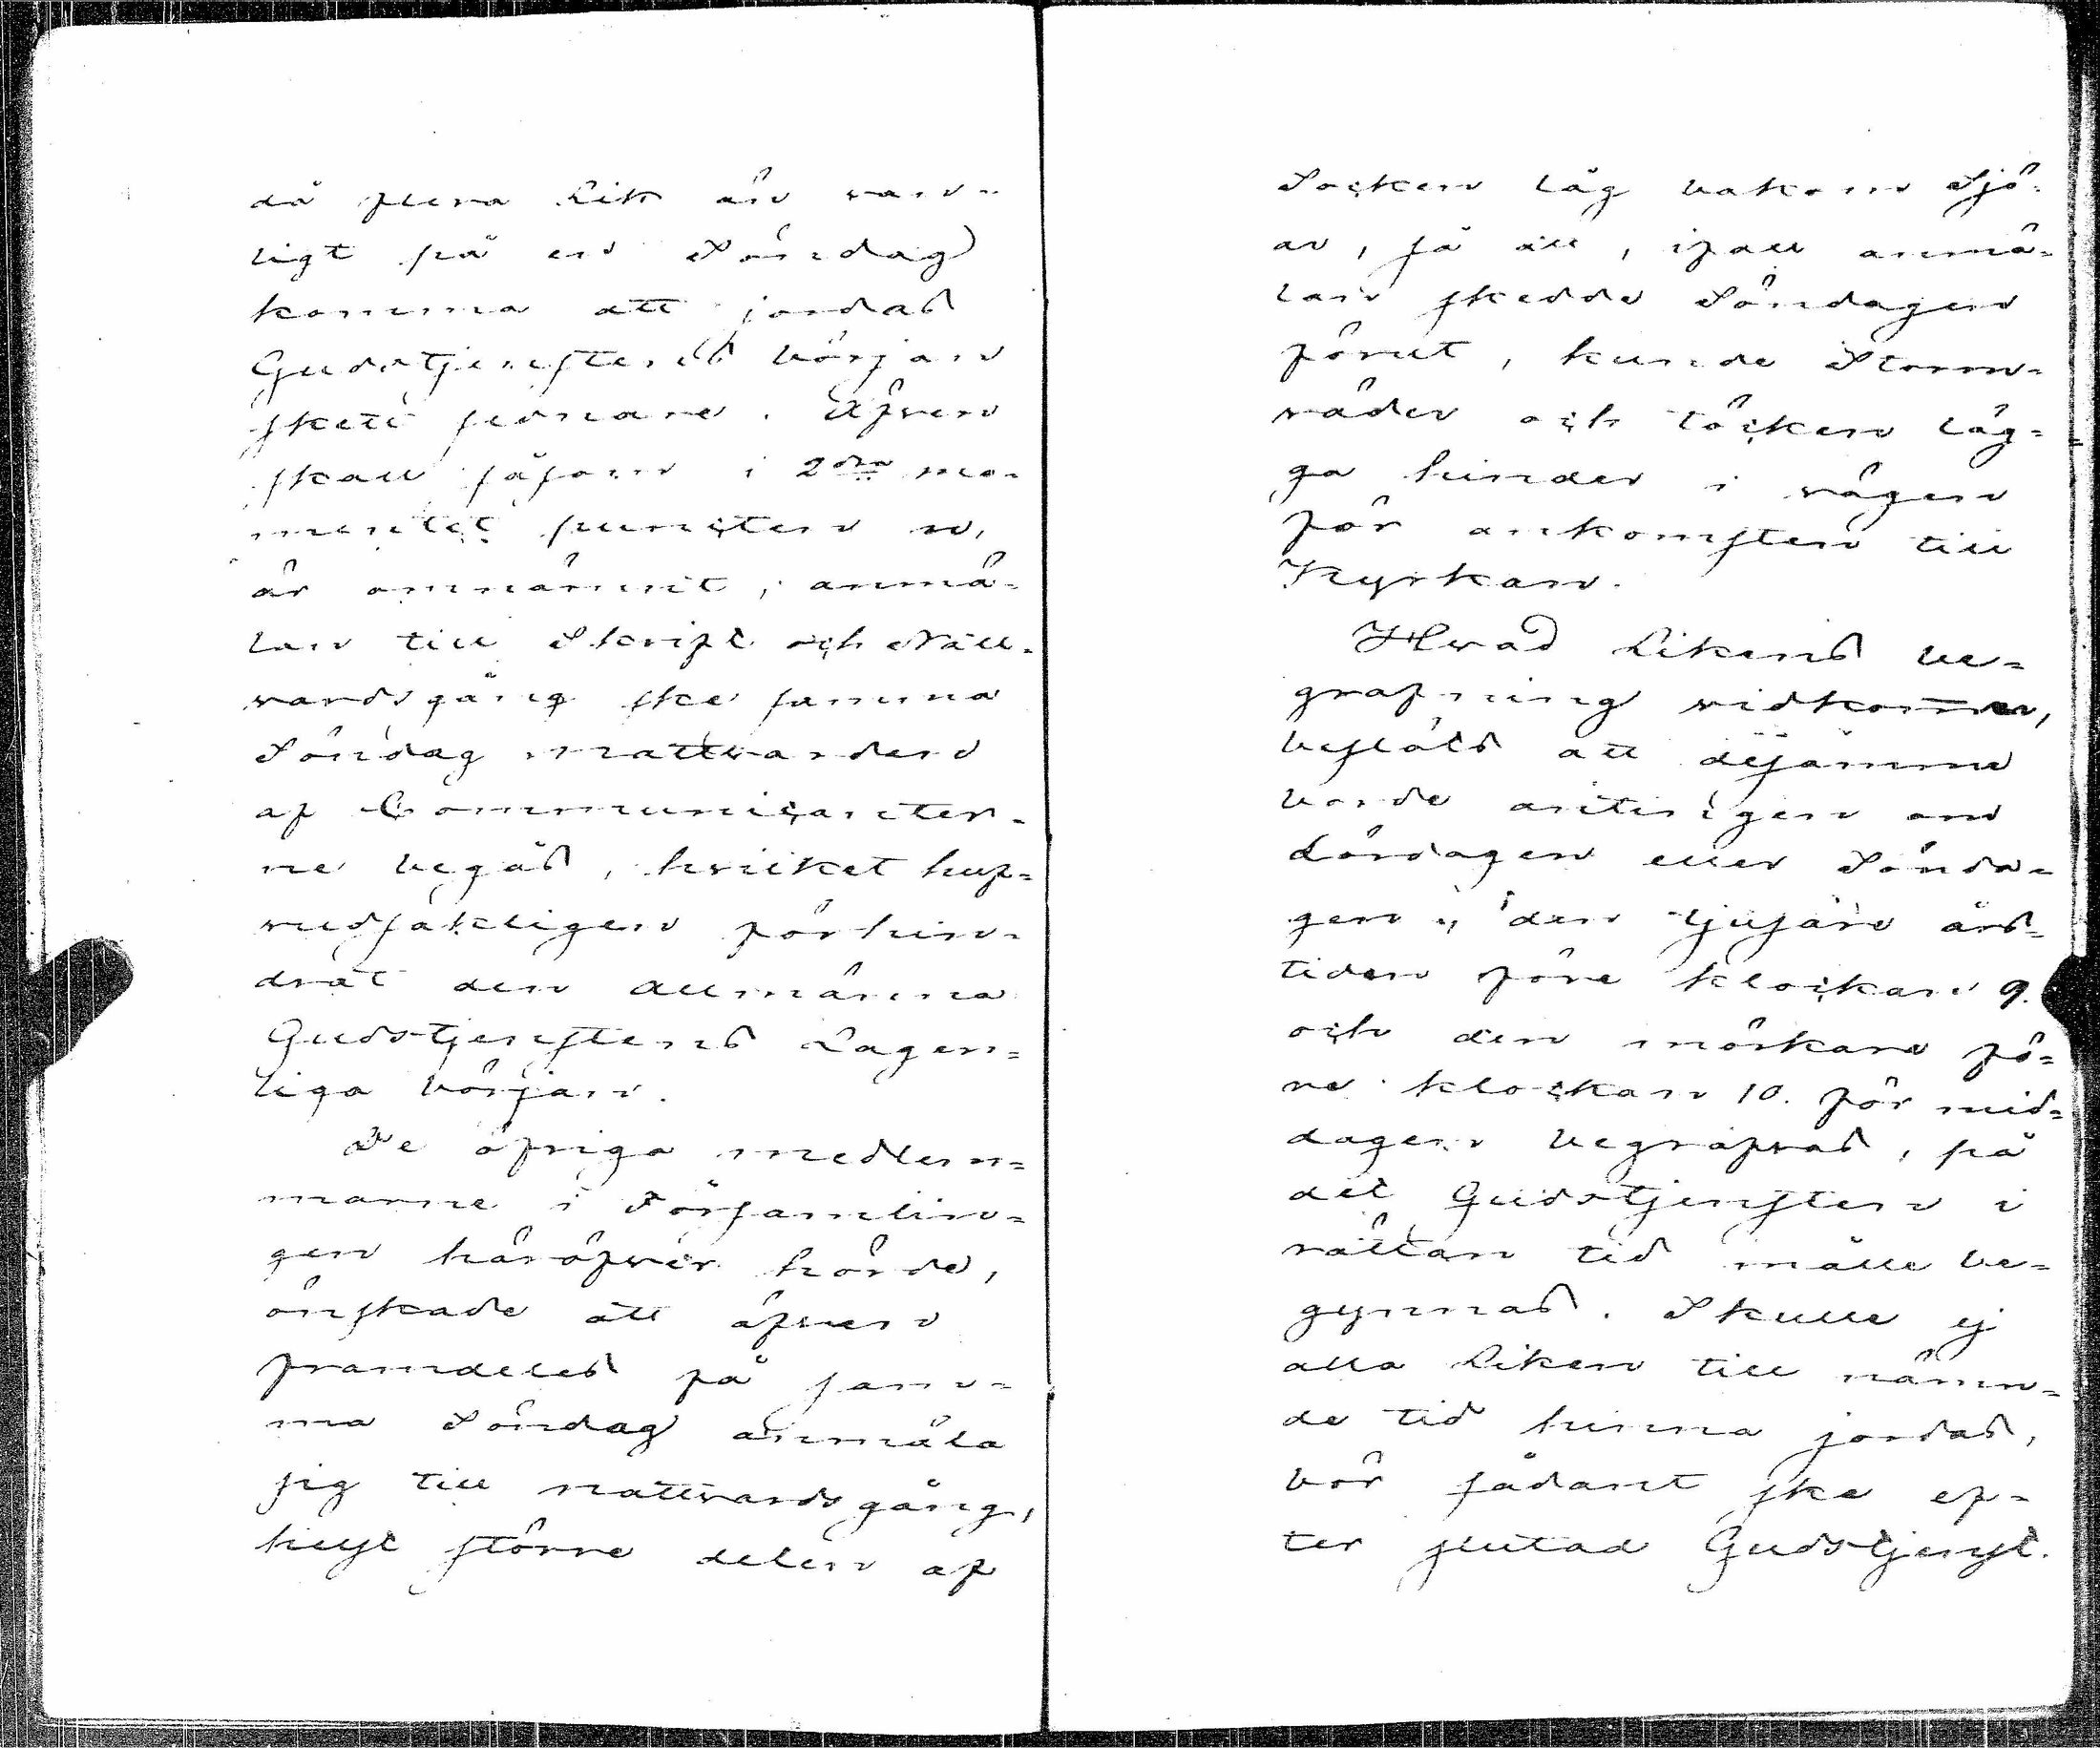 då flera Lik än van-
ligt på en Söndag
komma att jordas
Gudstjenstens början
skett sednare. Äfven
skall såsom i 2dra mo-
mentet puncten n,
är omnämnt, anmä-
lan till Skrift och Natt-
vardsgång ske samma
Söndag nattvarden
af Communicanter-
ne begås, hvilket huf-
vudsakligen förhin-
drat den allmänna
Gudstjenstens Lagen-
liga början.
De öfriga medlem-
marne i Församlin-
gen häröfver hörde,
önskade att äfven
framdeles på sam-
ma Söndag anmäla
sig till nattvardsgång,
helst större delen af
Socken låg bakom Sjö-
ar, så att, ifall anmä-
lan skedde Söndagen
förut, kunde Storm-
väder och töcken läg-
ga hinder i vägen
för ankomsten till
Kyrkan.
Hvad Likens be-
grafning vidkommer,
beslöts att desamme
borde antingen om
Lördagen eller Sönda-
gen, i den ljusare års-
tiden före klockan 9.
och den mörkare fö-
re klockan 10. för mid-
dagen begrafvas, på
det Gudstjensten i
rättan tid måtte be-
gynnas. Skulle ej
alla Liken till nämn-
de tid hinna jordas,
bör sådant ske ef-
ter slutad Gudstjenst.